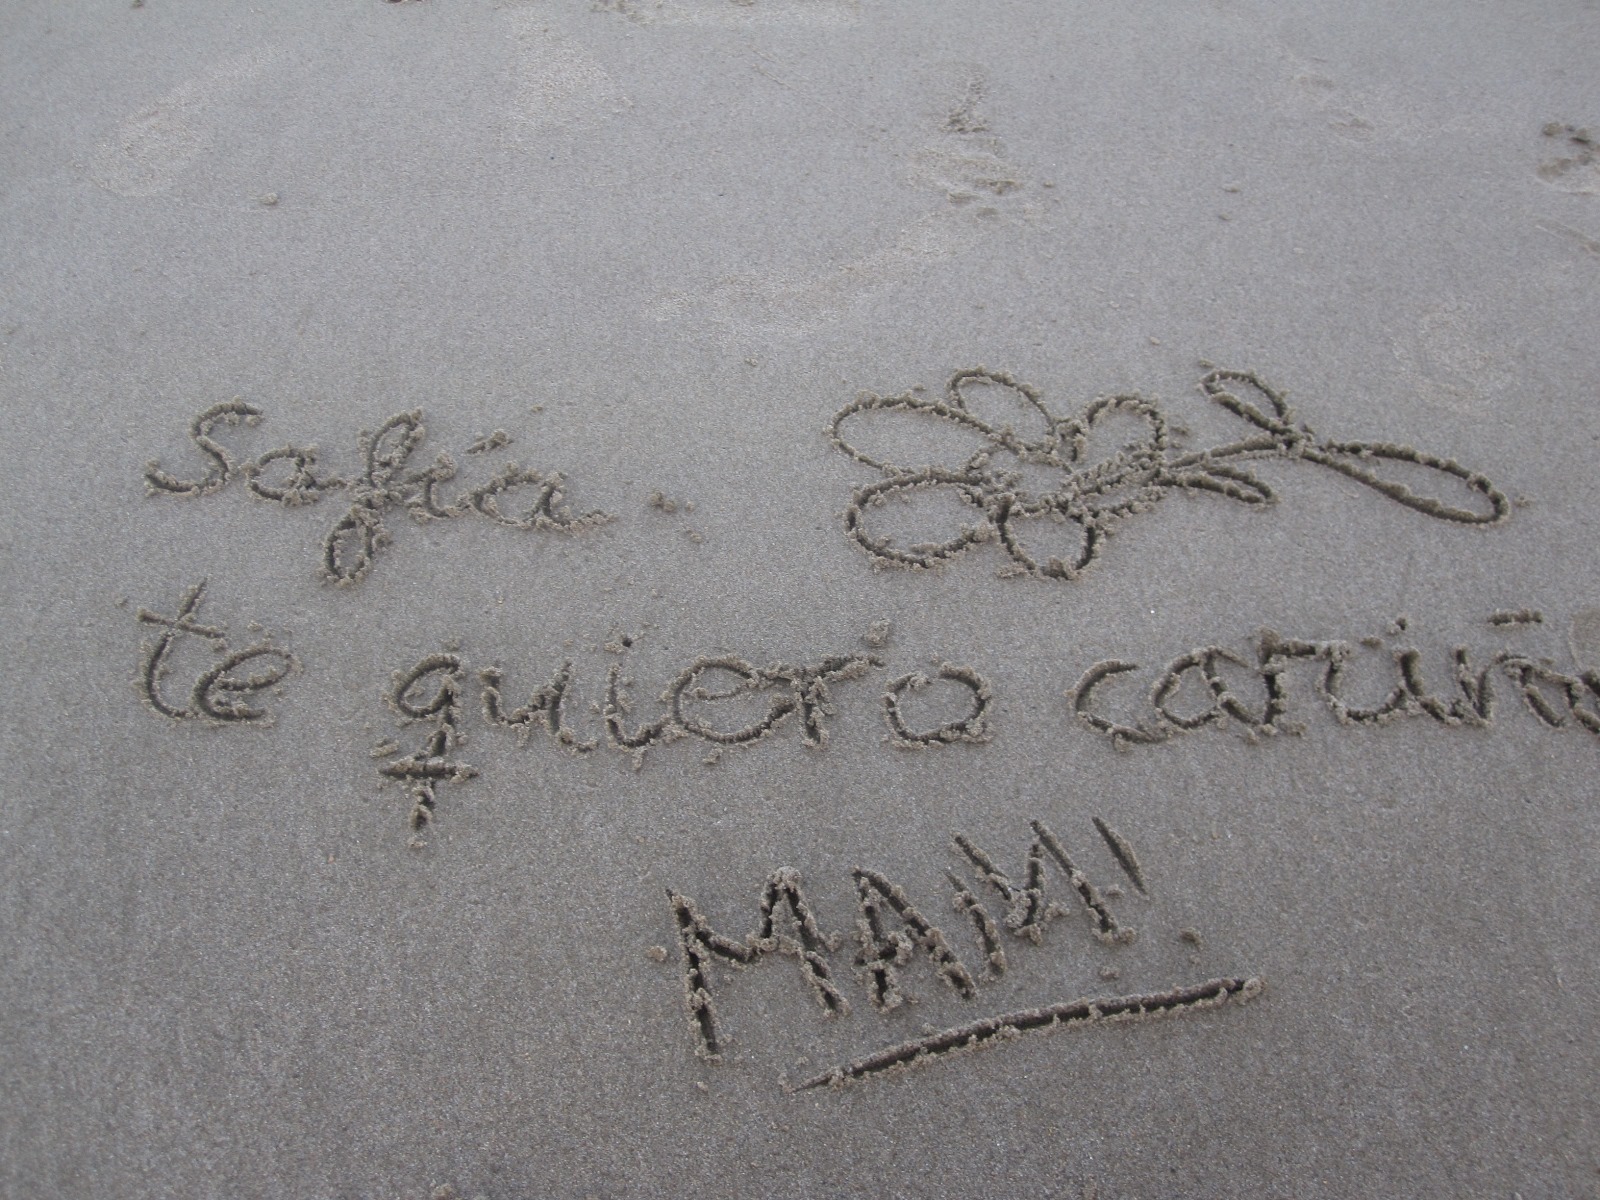 Sofía
te quiero cariño
MAMI